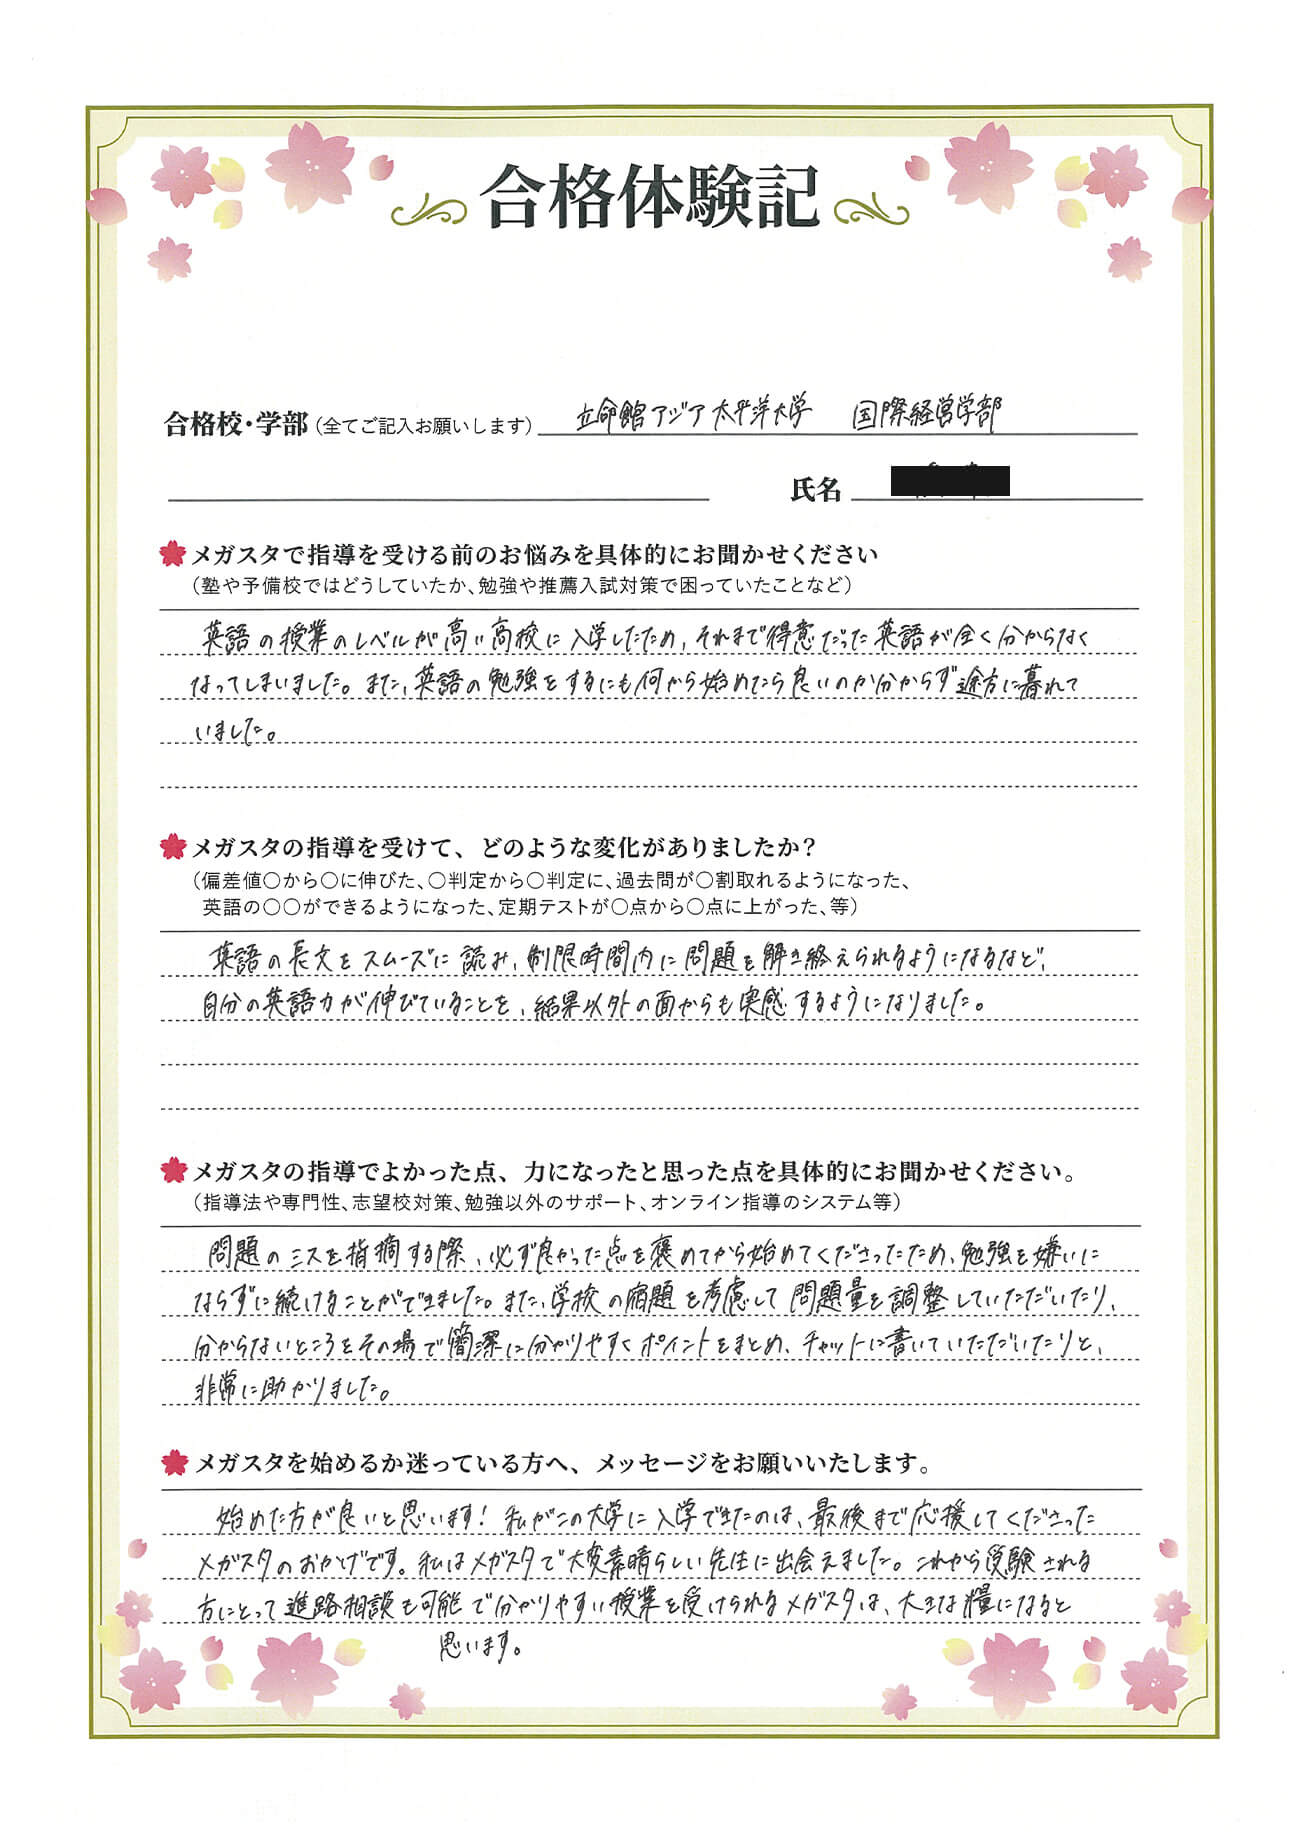 合格体験記
合格校・学部（全てご記入お願いします） 立命館アジア太平洋大学 国際経営学部
氏名
メガスタで指導を受ける前のお悩みを具体的にお聞かせください
（塾や予備校ではどうしていたか、勉強や推薦入試対策で困っていたことなど）
英語の授業のレベルが高い高校に入学したため、それまで得意だった英語が全く分からなく
なってしまいました。また、英語の勉強をするにも何から始めたら良いのか分からず途方に暮れて
いました。
メガスタの指導を受けて、どのような変化がありましたか？
（偏差値〇から〇に伸びた、〇判定から〇判定に、過去問が〇割取れるようになった、
英語の〇〇ができるようになった、定期テストが〇点から〇点に上がった、等）
英語の長文をスムーズに読み、制限時間内に問題を解き終えられるようになるなど、
自分の英語力が伸びていることを、結果以外の面からも実感するようになりました。
メガスタの指導でよかった点、力になったと思った点を具体的にお聞かせください。
（指導法や専門性、志望校対策、勉強以外のサポート、オンライン指導のシステム等）
問題のミスを指摘する際、必ず良かった点を褒めてから始めてくださったため、勉強を嫌いに
ならずに続けることができました。また、学校の宿題を考慮して問題量を調整していただいたり、
分からないところをその場で簡潔に分かりやすくポイントをまとめ、チャットに書いていただいたりと、
非常に助かりました。
メガスタを始めるか迷っている方へ、メッセージをお願いいたします。
始めた方が良いと思います！私がこの大学に入学できたのは、最後まで応援してくださった
メガスタのおかげです。私はメガスタで大変素晴らしい先生に出会えました。これから受験される
方にとって進路相談も可能で分かりやすい授業を受けられるメガスタは、大きな糧になると
思います。